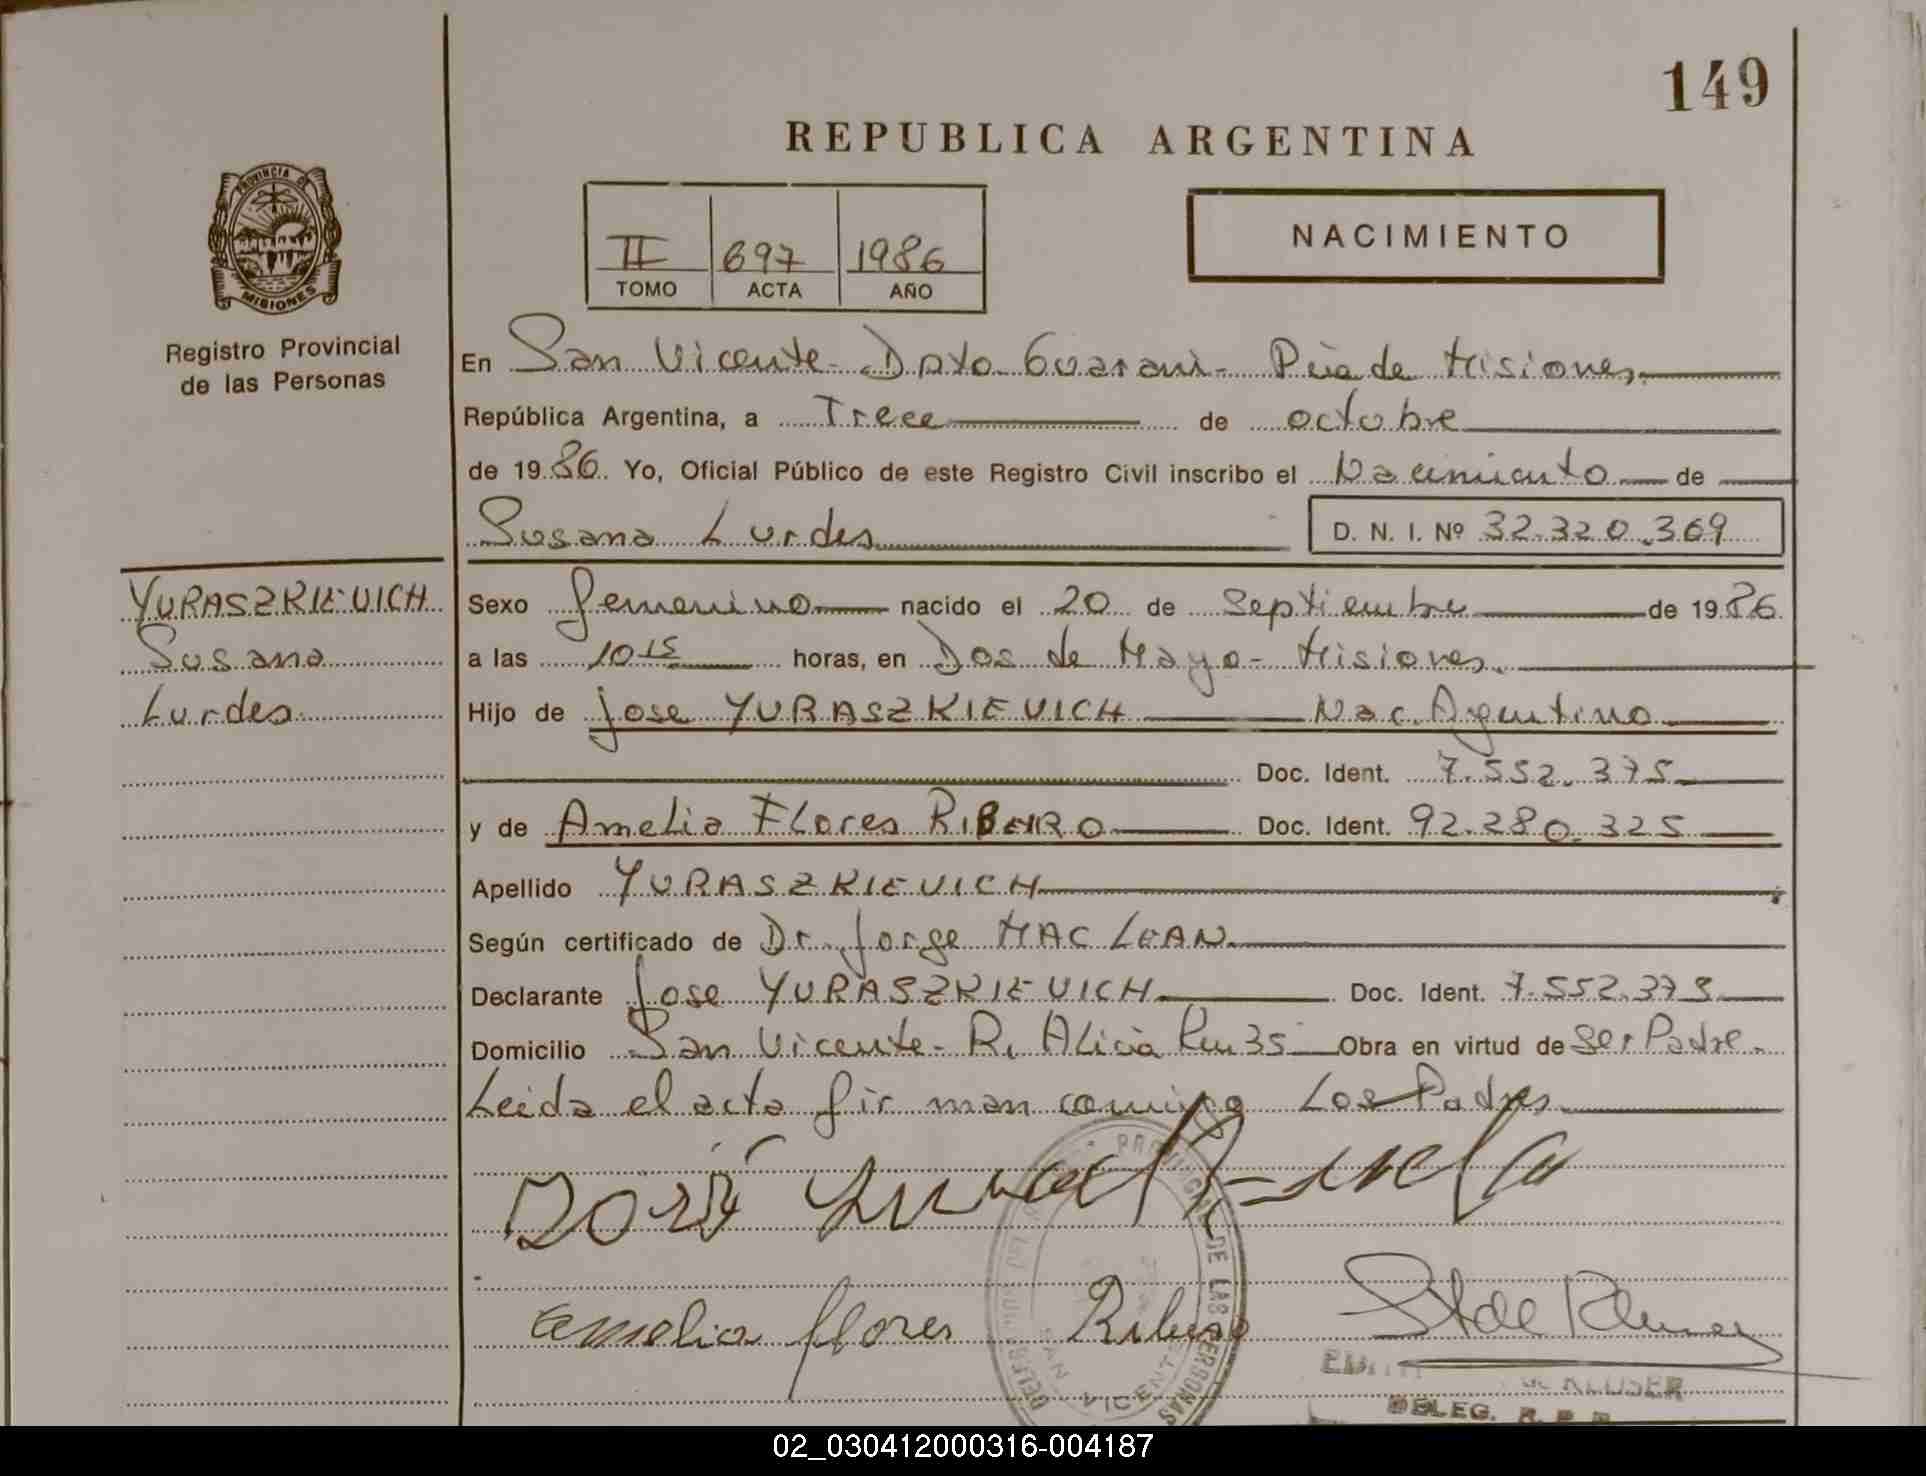 149
REPUBLICA ARGENTINA
PROVINCIA DE
MISIONES
Registro Provincial
de las Personas
II 697 1986
TOMO ACTA AÑO
NACIMIENTO
En San Vicente - Dpto Guarani - Pcia de Misiones.
República Argentina, a Trece de octobre
de 1986. Yo, Oficial Público de este Registro Civil inscribo el Nacimiento de
Susana Lurdes D. N. I. Nº 32.320.369
YURASZKIEVICH
Susana
Lurdes
Sexo femenino nacido el 20 de Septiembre de 1986
a las 10 15 horas, en Dos de Mayo - Misiones.
Hijo de Jose YURASZKIEVICH Nac. Argentino
Doc. Ident. 7.552.375
y de Amelia Flores RIBEIRO Doc. Ident. 92.280.325
Apellido YURASZKIEVICH
Según certificado de Dr. Jorge MAC LEAN
Declarante Jose YURASZKIEVICH Doc. Ident. 7.552.375
Domicilio San Vicente - R. Alicia Km 35 Obra en virtud de Ser Padre.
Leida el acta firman comigo Los Padres
Amelia flores Ribeiro
DE LAS PERSONAS
SAN VICENTE
DE KLUSER
DELEG. R. P. P.
02_030412000316-004187